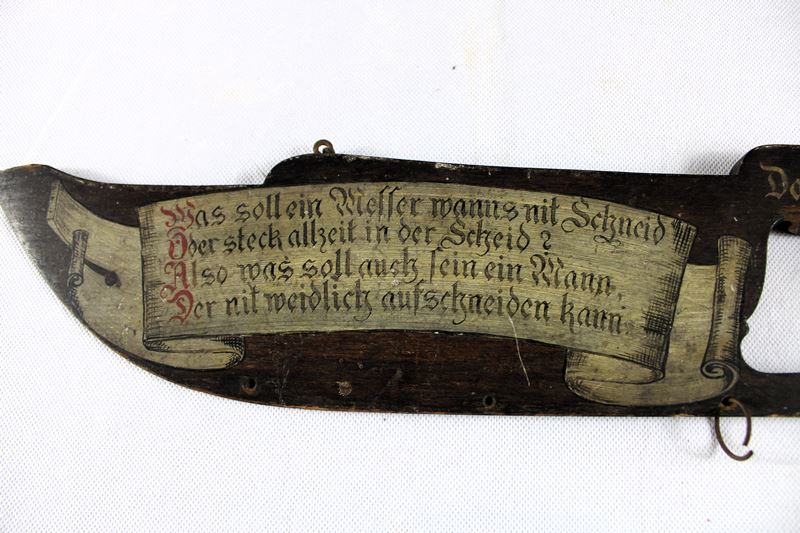 Was soll ein Messer wanns nit Schneid
Oder steck allzeit in der Scheid?
Also was soll auch sein ein Mann,
Der nit weidlich aufschneiden kann.
De